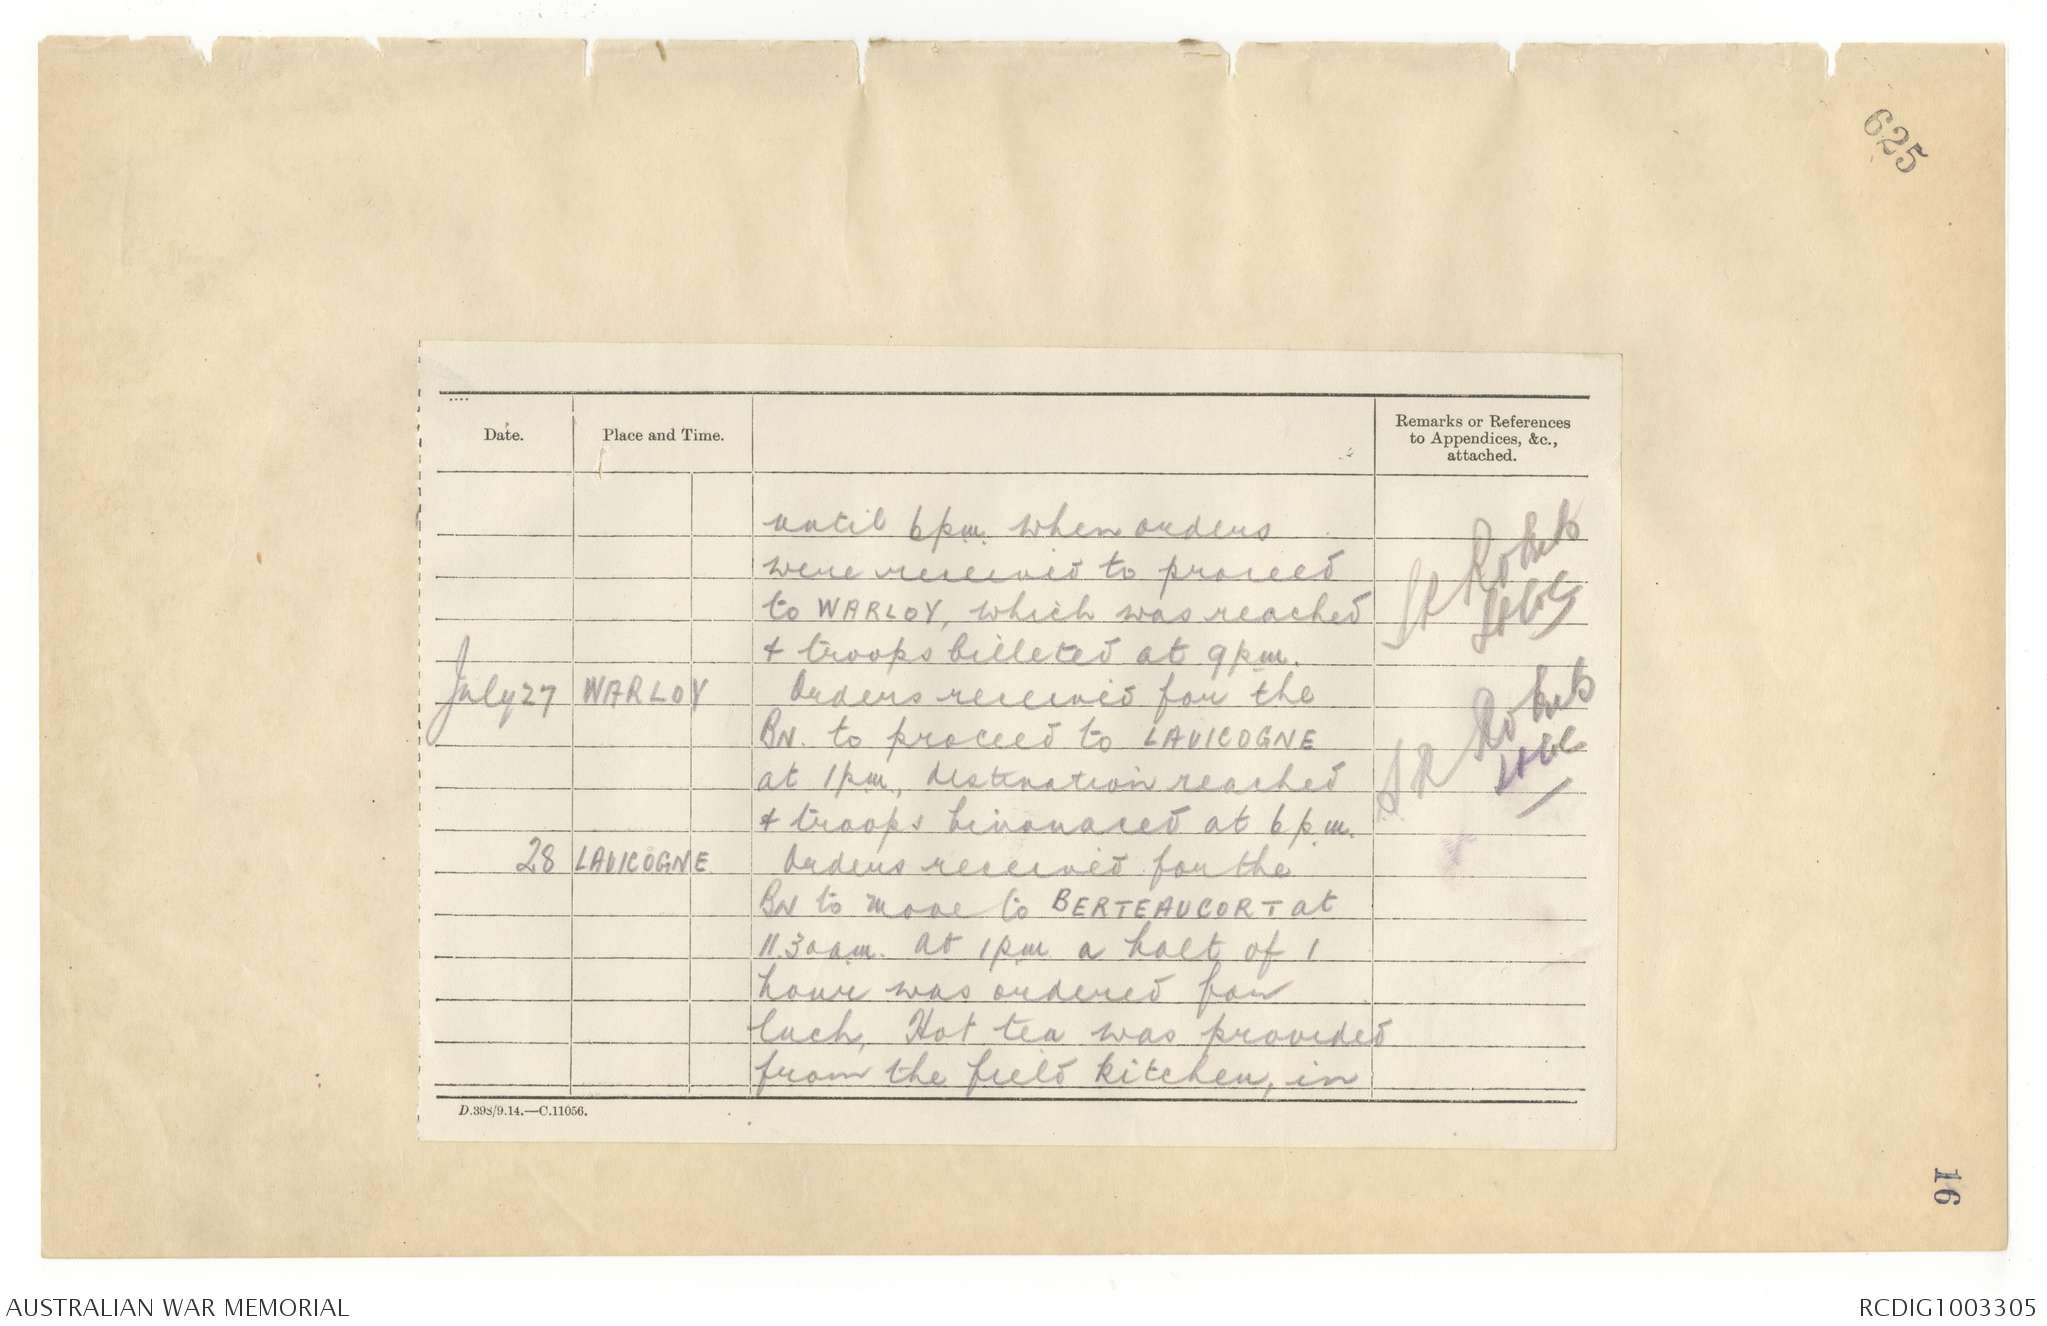 625
Date.
Place and Time.
Remarks or References
to Appendices, &c.,
attached.
until 6pm. when orders
were received to proceed
to WARLOY, which was reached
& troops billeted at 9pm.
July 27 WARLOY Orders received for the
BN. to proceed to LAVICOGNE
at 1pm, destination reached
& troops bivouaced at 6pm.
28 LAVICOGNE Orders received for the
BN to move to BERTEAUCORT at
11.30am. At 1pm a halt of 1
hour was ordered for
luch. Hot tea was provided
from the field kitchen, in
SR Roberts
SR Roberts
D.398/9.14.—C.11056.
16
AUSTRALIAN WAR MEMORIAL
RCDIG1003305